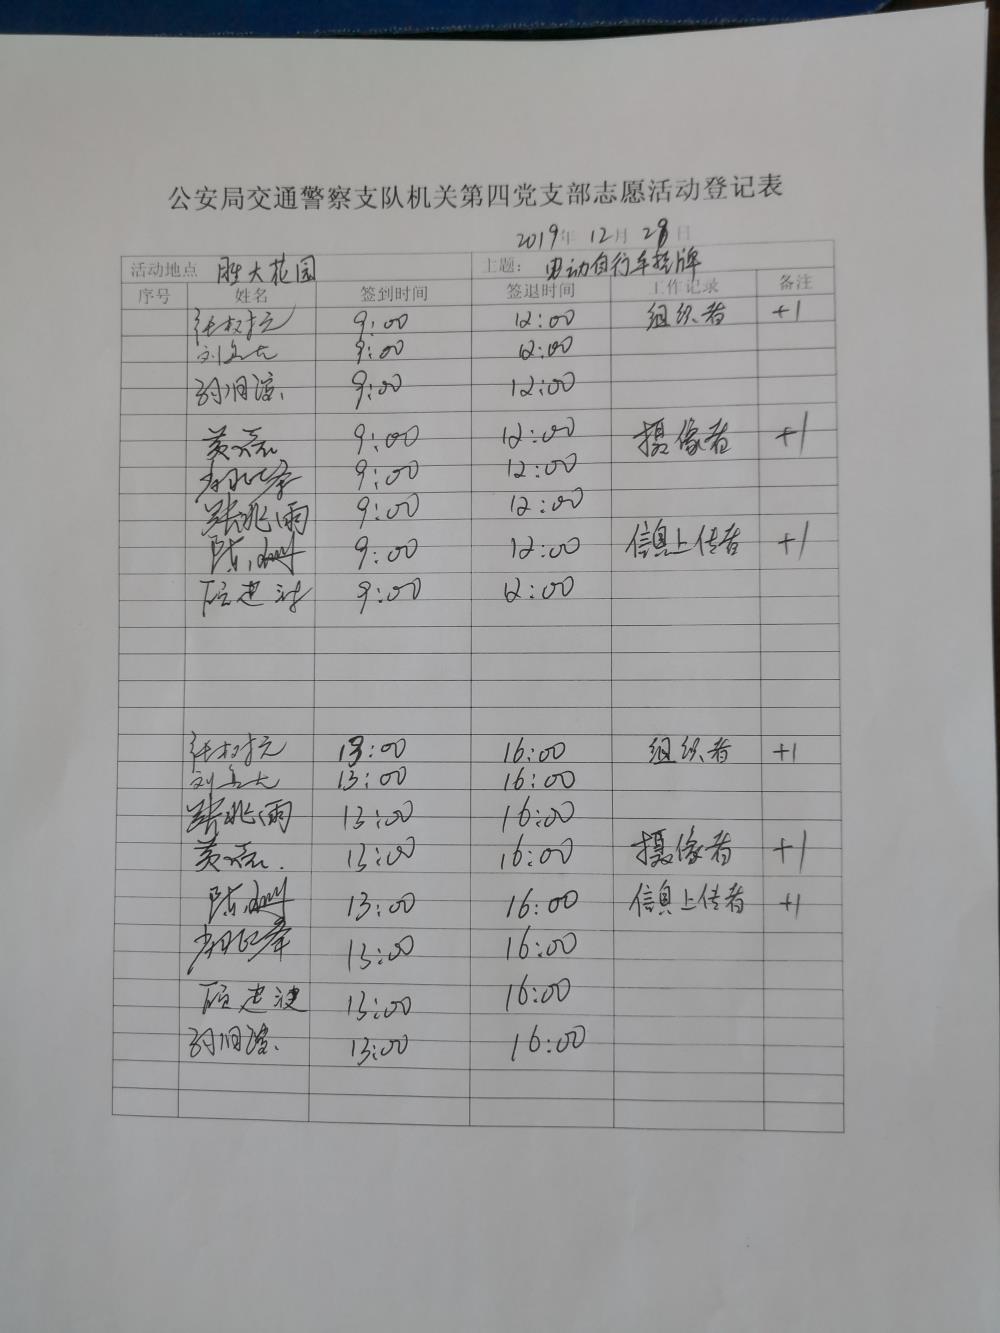 公安局交通警察支队机关第四党支部志愿活动登记表
2019年 12月 28日
活动地点 胜大花园 主题： 电动自行车挂牌
序号 姓名 签到时间 签退时间 工作记录 备注
9:00 12:00 组织者 +1
9:00 12:00
9:00 12:00
9:00 12:00 摄像者 +1
9:00 12:00
张兆雨 9:00 12:00
9:00 12:00 信息上传者 +1
9:00 12:00
13:00 16:00 组织者 +1
13:00 16:00
张兆雨 13:00 16:00
13:00 16:00 摄像者 +1
13:00 16:00 信息上传者 +1
13:00 16:00
13:00 16:00
13:00 16:00